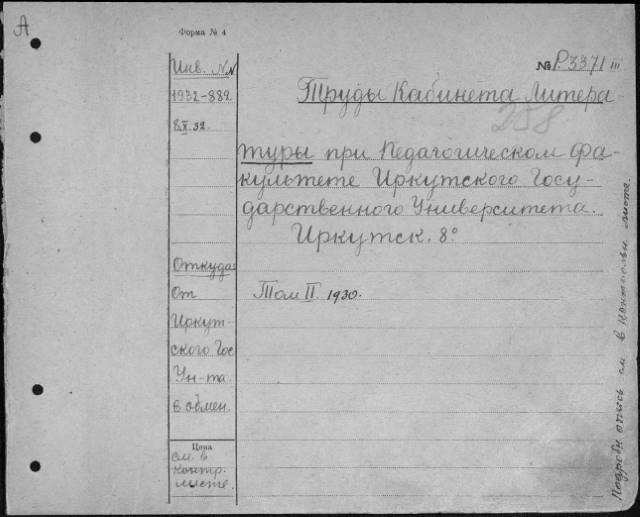 А
Форма № 4
№ Р.3371 III
Инв. №№
1932-882
8/X 32.
Труды Кабинета Литера-
258
туры при Педагогическом Фа-
культете Иркутского Госу-
дарственного Университета.
Иркутск. 8°.
Откуда:
От
Иркут-
ского Гос
Ун-та.
в обмен.
Том II. 1930.
Цена
см. в
контр.
листе.
Подробн опись см в Контрольн. листе.